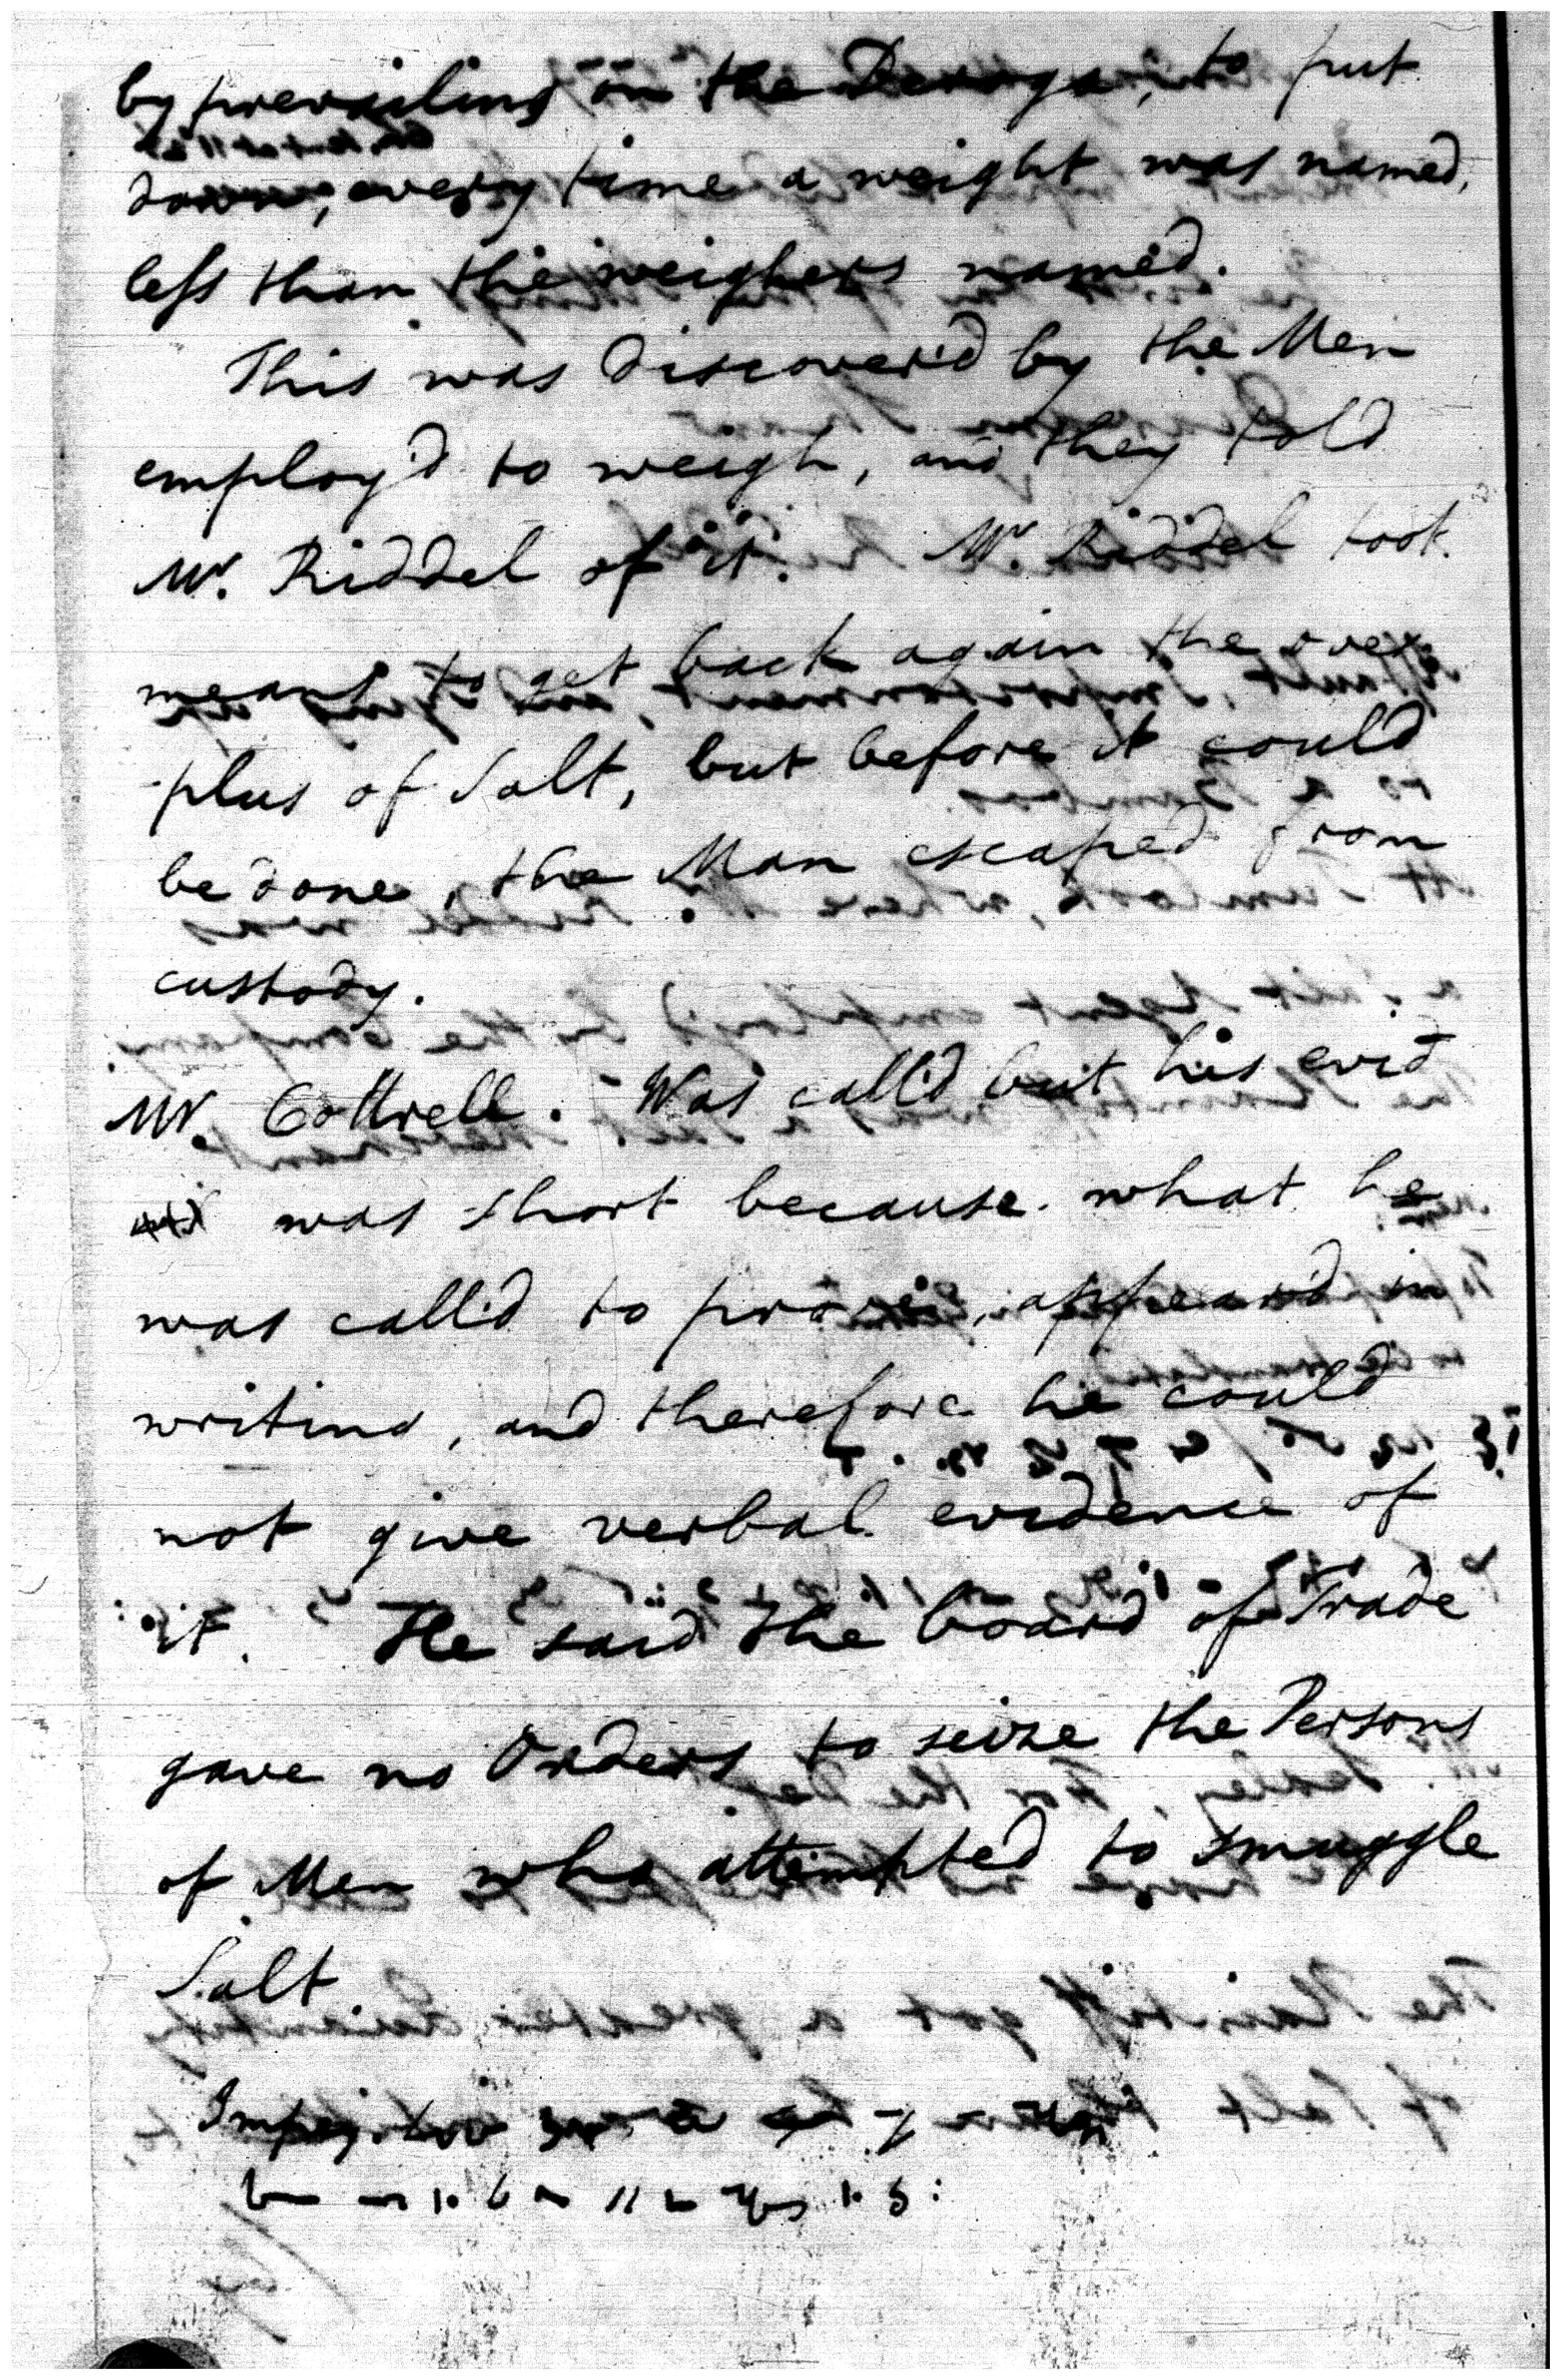 by prevailing on the Deroga, to put
down, every time a weight was named,
less than the weighers named.
This was discover'd by the Men
employ'd to weigh, and they told
Mr. Riddel of it. Mr. Riddel took
means to get back again the over
plus of Salt, but before it could
be done, the Man escaped from
custody.
Mr. Cottrell. Was call'd but his evid
was short because what he
was call'd to prove, appear'd in
writing, and therefore he could
not give verbal evidence of
it. He said the board of Trade
gave no Orders to seize the Persons
of Men who attempted to smuggle
Salt
Impey.